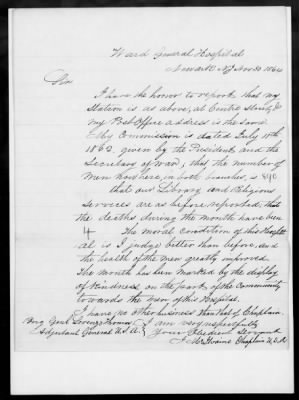 Ward General Hospital
Newark NJ Nov 30 1864
Sir
I have the honor to report that my
Station is as above, at Centre Street, &
my Post Office address is the same.
My Commission is dated July
1862, given by the President and the
Secretary of war; that the number of
men now here, in both branches, is 840
that our Library and Religious
Services are as before reported; that
the deaths during the month have been
4 The moral Condition of this Hospit
al is I judge better than before, and
the health of the men greatly improved.
The month has been marked by the display
of kindness on the part of the Community
towards the men of this Hospital.
I have no other business than that of Chaplain.
I am very respectfully
Brig Genl Lorenzo Thomas
Adjutant General U.S.A.
Your Obedient Servant
Chaplain U.S.A.